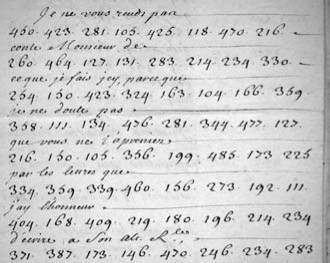 Je ne vous rends pas
450. 423. 281. 105. 425. 118. 470. 216.
conte Monsieur de
260. 464. 127. 131. 283. 214. 234. 330
ce que je fais jcy, parce que
254. 150. 423. 324. 163. 104. 166. 359.
je ne doute pas
358. 111. 134. 476. 281. 344. 477. 127.
que vous ne l'aprenier
216. 150. 105. 356. 199. 485. 173. 225
par les letres que
334. 359. 339. 460. 156. 273. 192. 111.
j'ay l'honneur
404. 168. 409. 219. 180. 196. 214. 234
d'écrire a Son Alt. R.les
371. 387. 173. 146. 470. 246. 234. 283